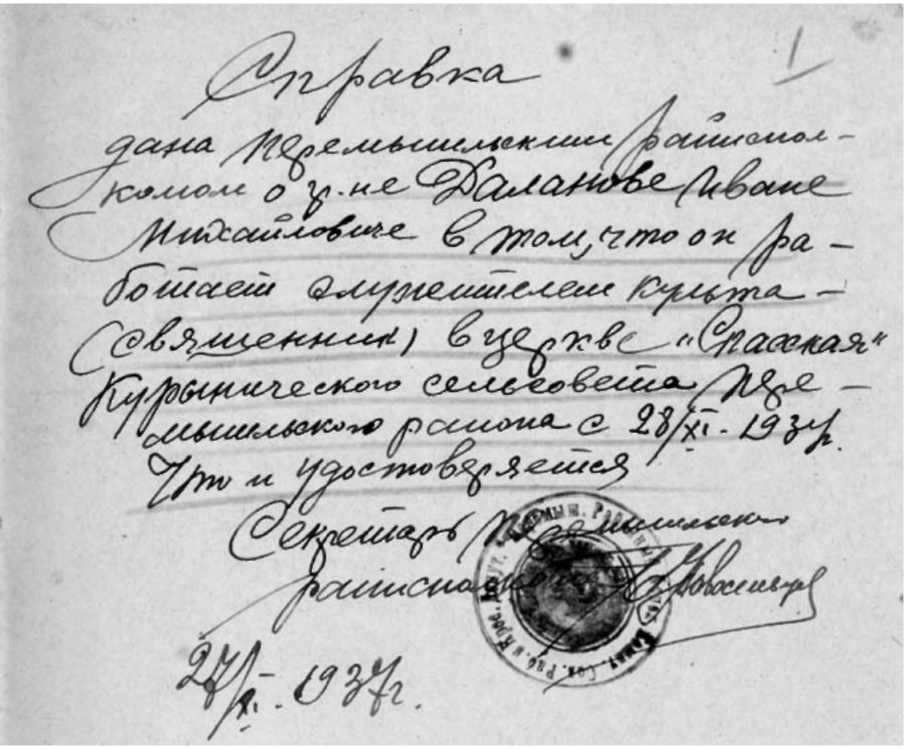 1
Справка
дана Перемышльским райиспол-
комом о гр-не Даланове Иване
Михайловиче в том, что он ра-
ботает служителем культа -
(священник) в церкве "Спасская"
Курынического сельсовета Пере-
мышльского района с 28/XI - 1937г.
Что и удостоверяется
Секретарь Перемышльского
райисполкома Новосельцев
27/XI. 1937г.